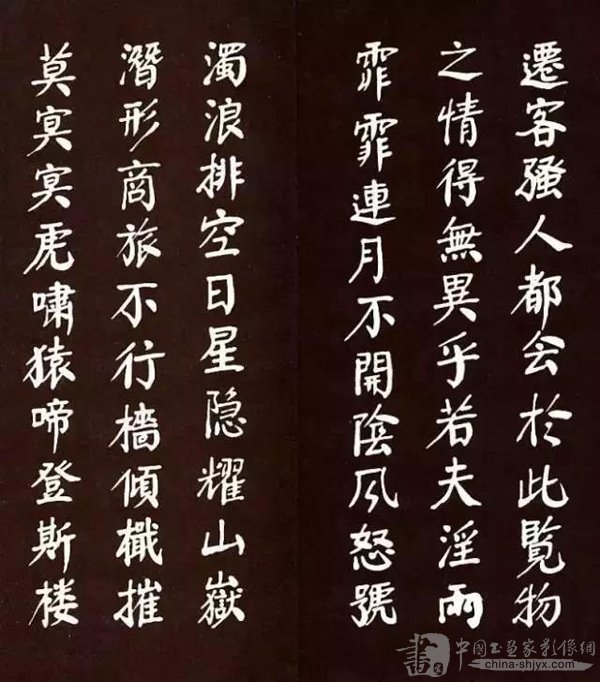 遷客騷人都会於此覧物
之情得無異乎若夫淫雨
霏霏連月不開陰风怒號
濁浪排空日星隐耀山嶽
潛形商旅不行檣傾檝摧
莫冥冥虎嘯猿啼登斯楼
書
中國书画家影像網
china-shjyx.com